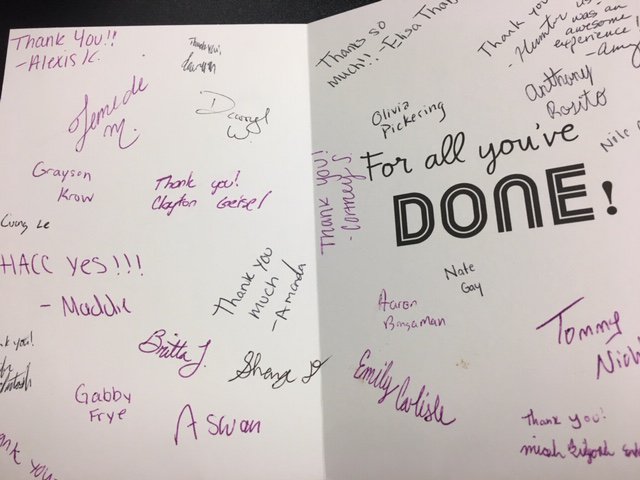 Thank You!!
-Alexis K.
Thank you!
Jemede
M.
Darryl
W.
Grayson
Krow
Thank you!
Clayton Geisel
Le
HACC Yes!!!
- Maddie
Thank You
much
-Amanda
you!
Britta J.
Gabby
Frye
A Swan
you
Thanks so
much!! -Elisa
Thank you
was an
awesome
experience!
-Amy
Anthony
Rosito
Olivia
Pickering
Nile
Thank you!
- Cortney S.
For all you've
DONE!
Nate
Gay
Aaron
Bingaman
Tommy
Emily Carlisle
Thank you!
micah